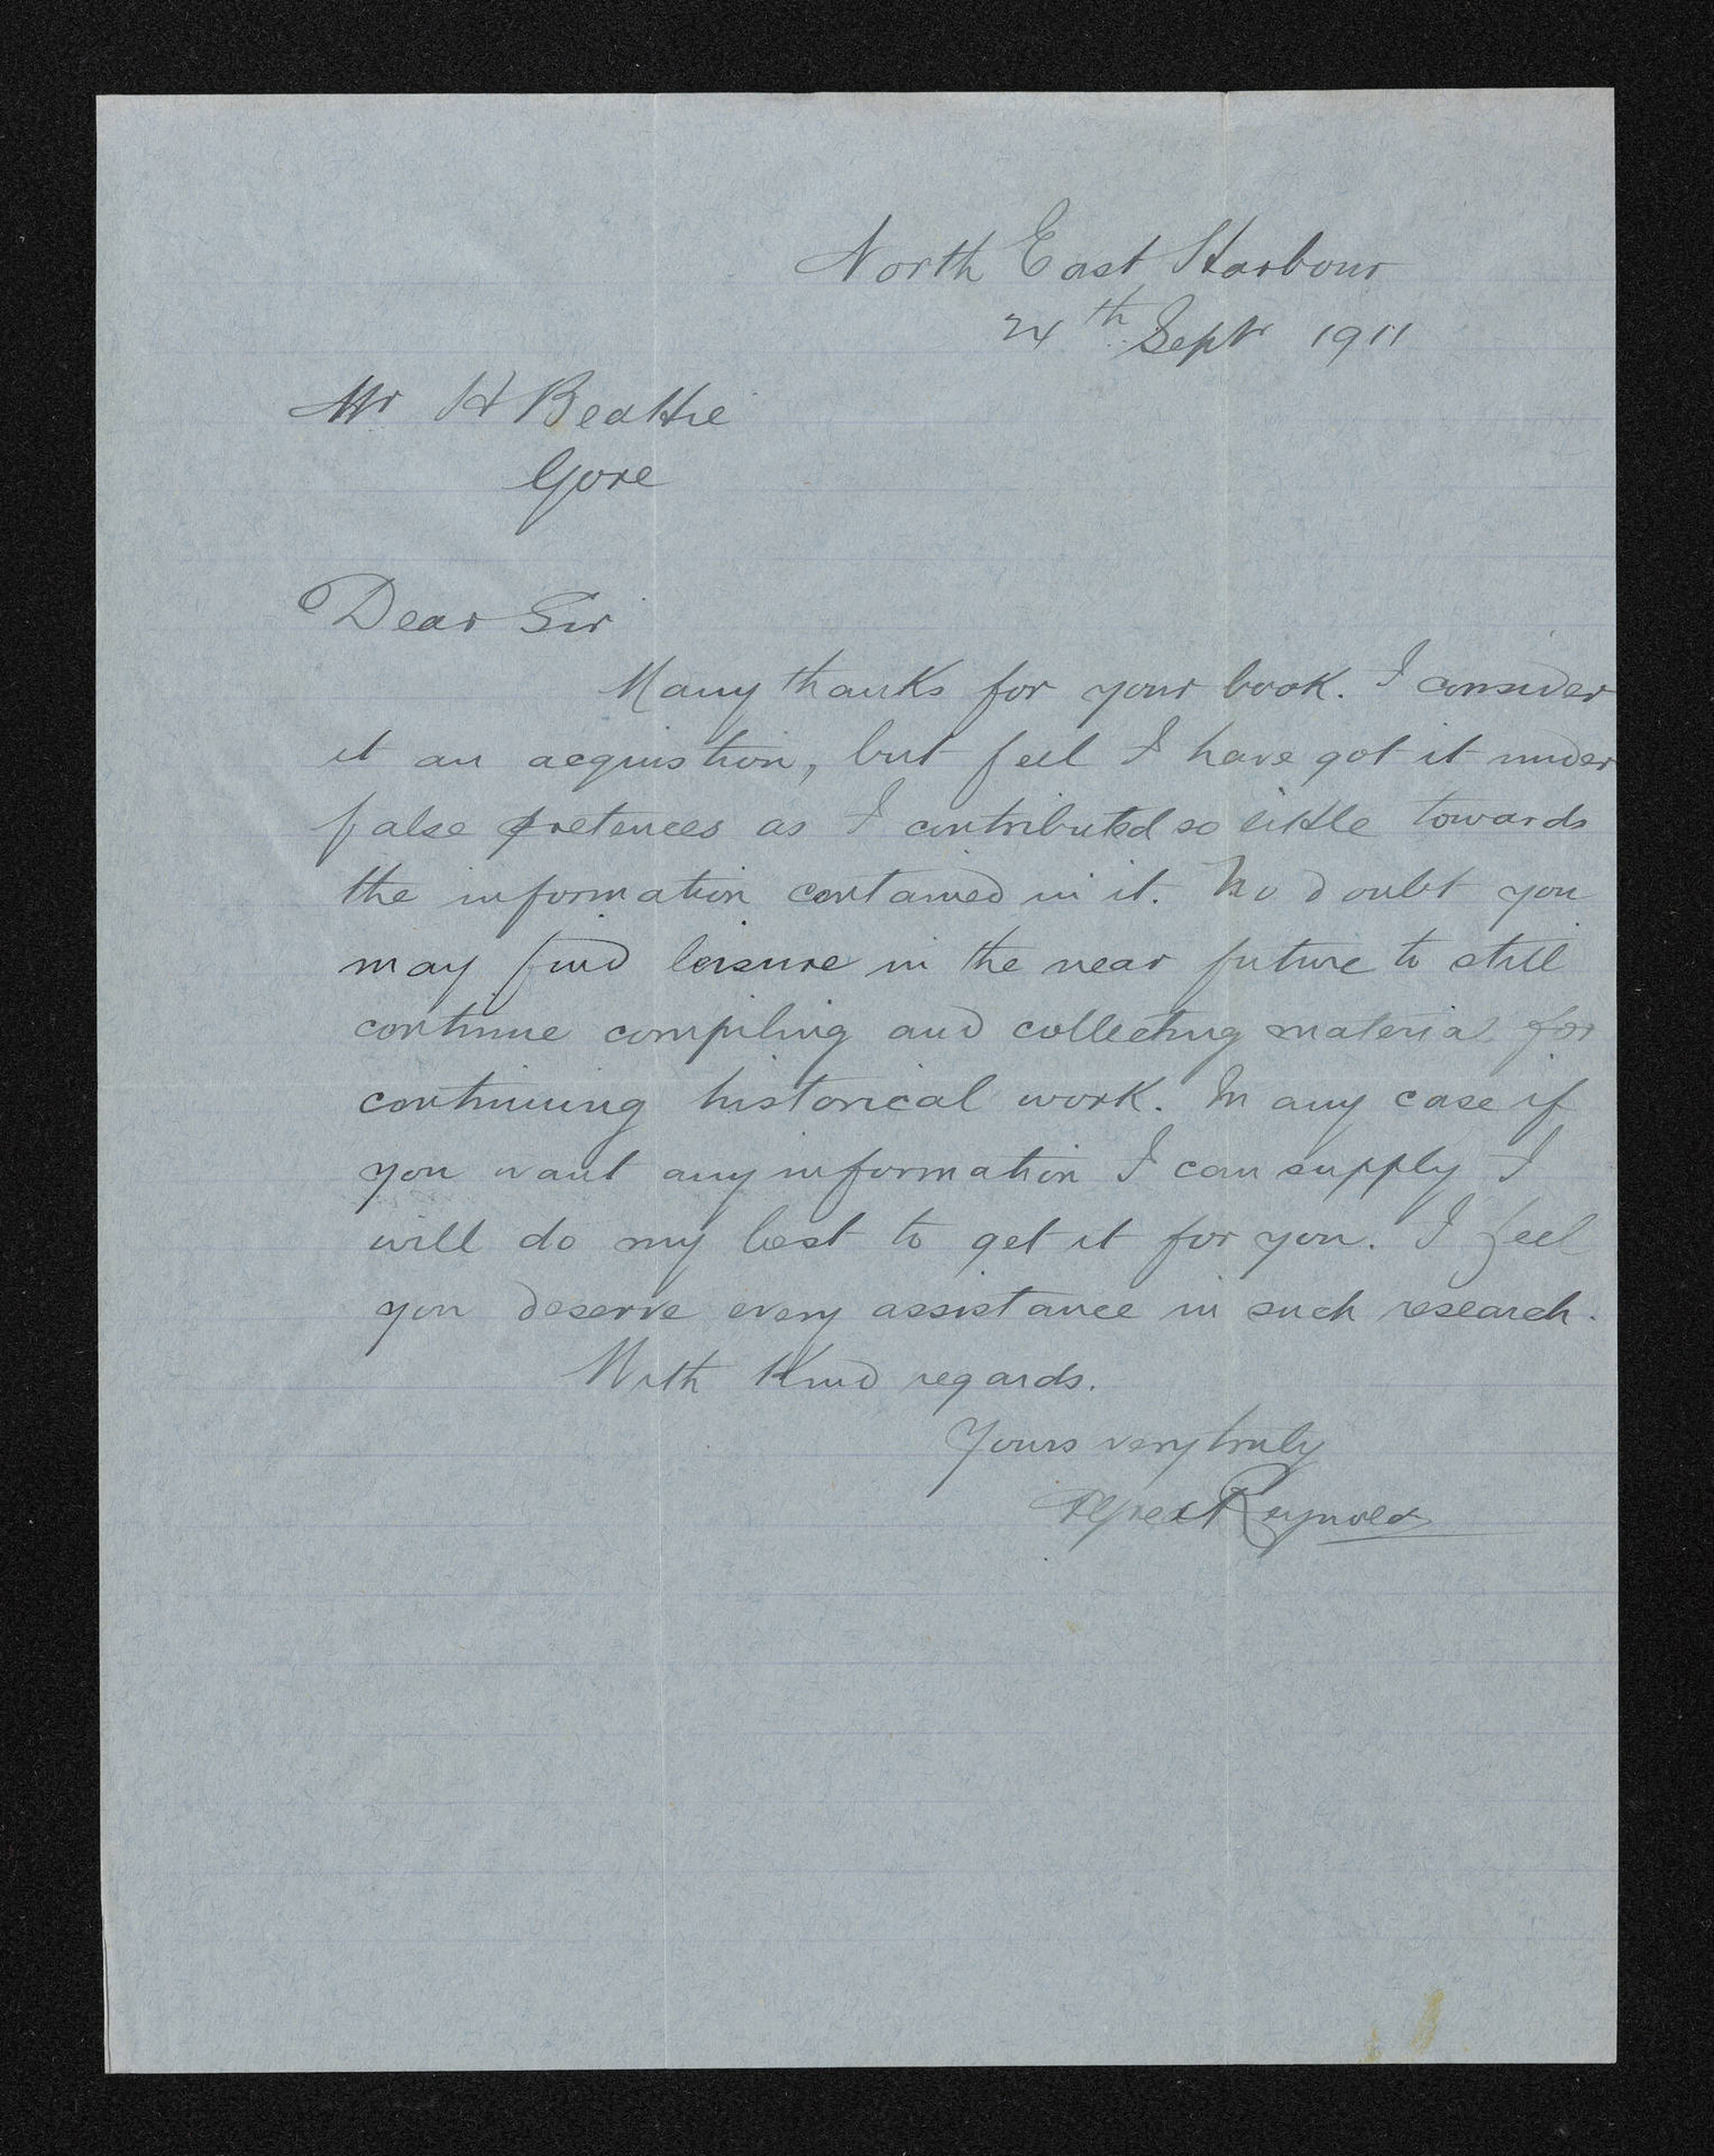 North East Harbour
24th Sept 1911
Mr H Beattie
Gore
Dear Sir
Many thanks for your book. I consider
it an acquistion, but feel I have got it under
false pretences as I contributed so little towards
the information contained in it. No doubt you
may find leisure in the near future to still
continue compiling and collecting material for
continuing historical work. In any case if
you want any information I can supply I
will do my best to get it for you. I feel
you deserve every assistance in such research.
With Kind regards.
Yours very truly
Alfred Reynolds